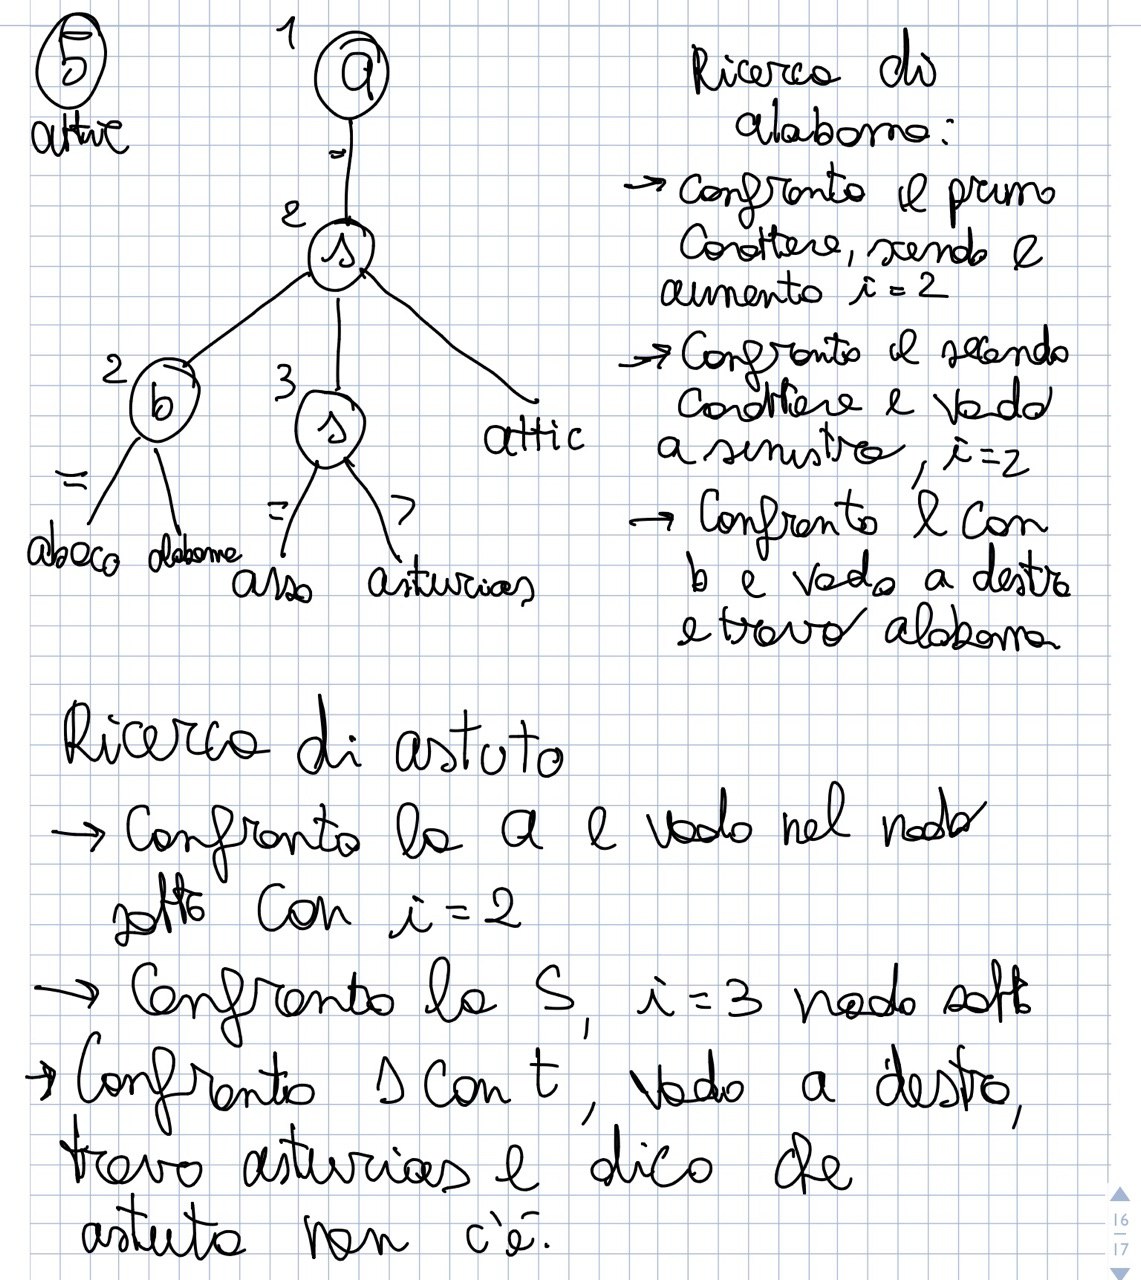 5
attre
1
a
=
2
s
2
b
3
s
attic
=
=
>
abaco alabama asso asturias
Ricerca di
alabama:
→ Confronto il primo
Carattere, scendo e
aumento i=2
→ Confronto il secondo
Carattere e vado
a sinistra, i=2
→ Confronto l con
b e vado a destra
e trovo alabama
Ricerca di astuto
→ Confronto la a e vado nel nodo
sotto con i=2
→ Confronto la S, i=3 nodo sotto
→ Confronto s con t, vado a destra,
trovo asturias e dico che
astuto non c'è.
16
17